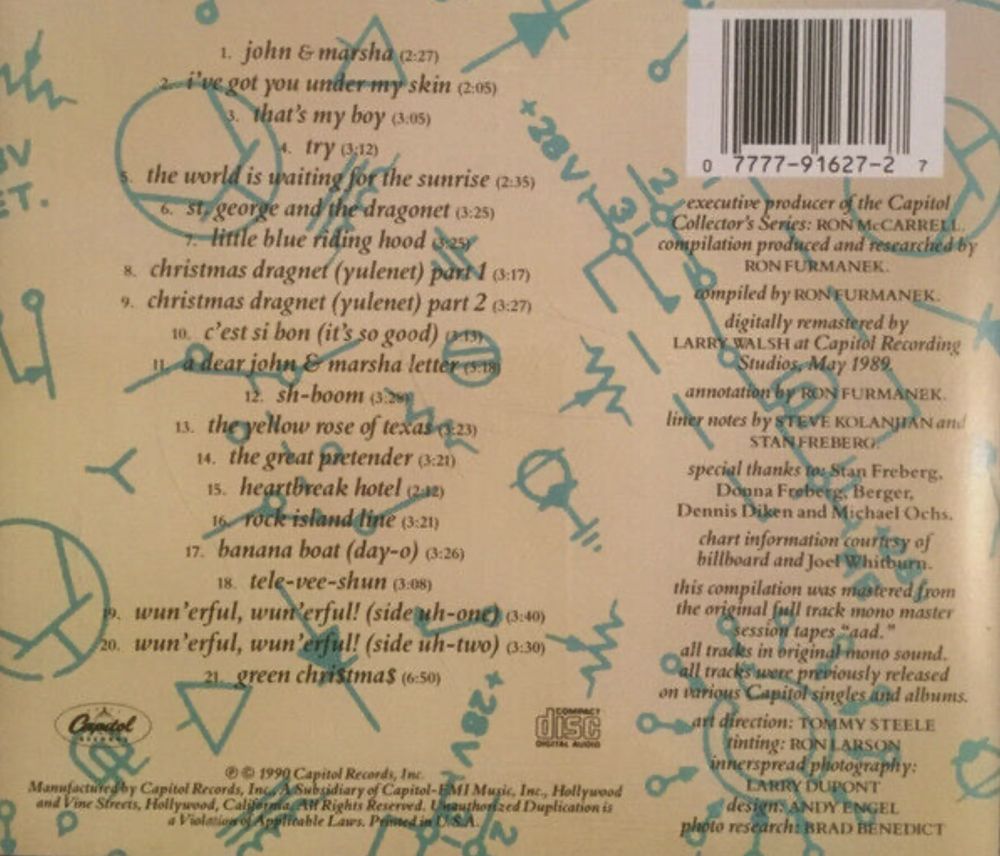 1. john & marsha (2:27)
2. i've got you under my skin (2:05)
3. that's my boy (3:05)
4. try (3:12)
5. the world is waiting for the sunrise (2:35)
6. st. george and the dragonet (3:25)
7. little blue riding hood (3:25)
8. christmas dragnet (yulenet) part 1 (3:17)
9. christmas dragnet (yulenet) part 2 (3:27)
10. c'est si bon (it's so good) (3:13)
11. a dear john & marsha letter (5:18)
12. sh-boom
13. the yellow rose of texas (3:23)
14. the great pretender (3:21)
15. heartbreak hotel (2:12)
16. rock island line (3:21)
17. banana boat (day-o) (3:26)
18. tele-vee-shun (3:08)
19. wun'erful, wun'erful! (side uh-one) (3:40)
20. wun'erful, wun'erful! (side uh-two) (3:30)
21. green chri$tma$ (6:50)
Capitol
RECORDS
COMPACT
disc
DIGITAL AUDIO
℗ © 1990 Capitol Records, Inc.
Manufactured by Capitol Records, Inc., A Subsidiary of Capitol-EMI Music, Inc., Hollywood
and Vine Streets, Hollywood, California. All Rights Reserved. Unauthorized Duplication is
a Violation of Applicable Laws. Printed in U.S.A.
0 7777-91627-2 7
executive producer of the Capitol
Collector's Series: RON McCARRELL.
compilation produced and researched by
RON FURMANEK.
compiled by RON FURMANEK.
digitally remastered by
LARRY WALSH at Capitol Recording
Studios, May 1989.
annotation by RON FURMANEK.
liner notes by STEVE KOLANJIAN and
STAN FREBERG.
special thanks to: Stan Freberg,
Donna Freberg, Berger,
Dennis Diken and Michael Ochs.
chart information courtesy of
billboard and Joel Whitburn.
this compilation was mastered from
the original full track mono master
session tapes "aad."
all tracks in original mono sound.
all tracks were previously released
on various Capitol singles and albums.
art direction: TOMMY STEELE
tinting: RON LARSON
innerspread photography:
LARRY DUPONT
design: ANDY ENGEL
photo research: BRAD BENEDICT
+28V
+28V